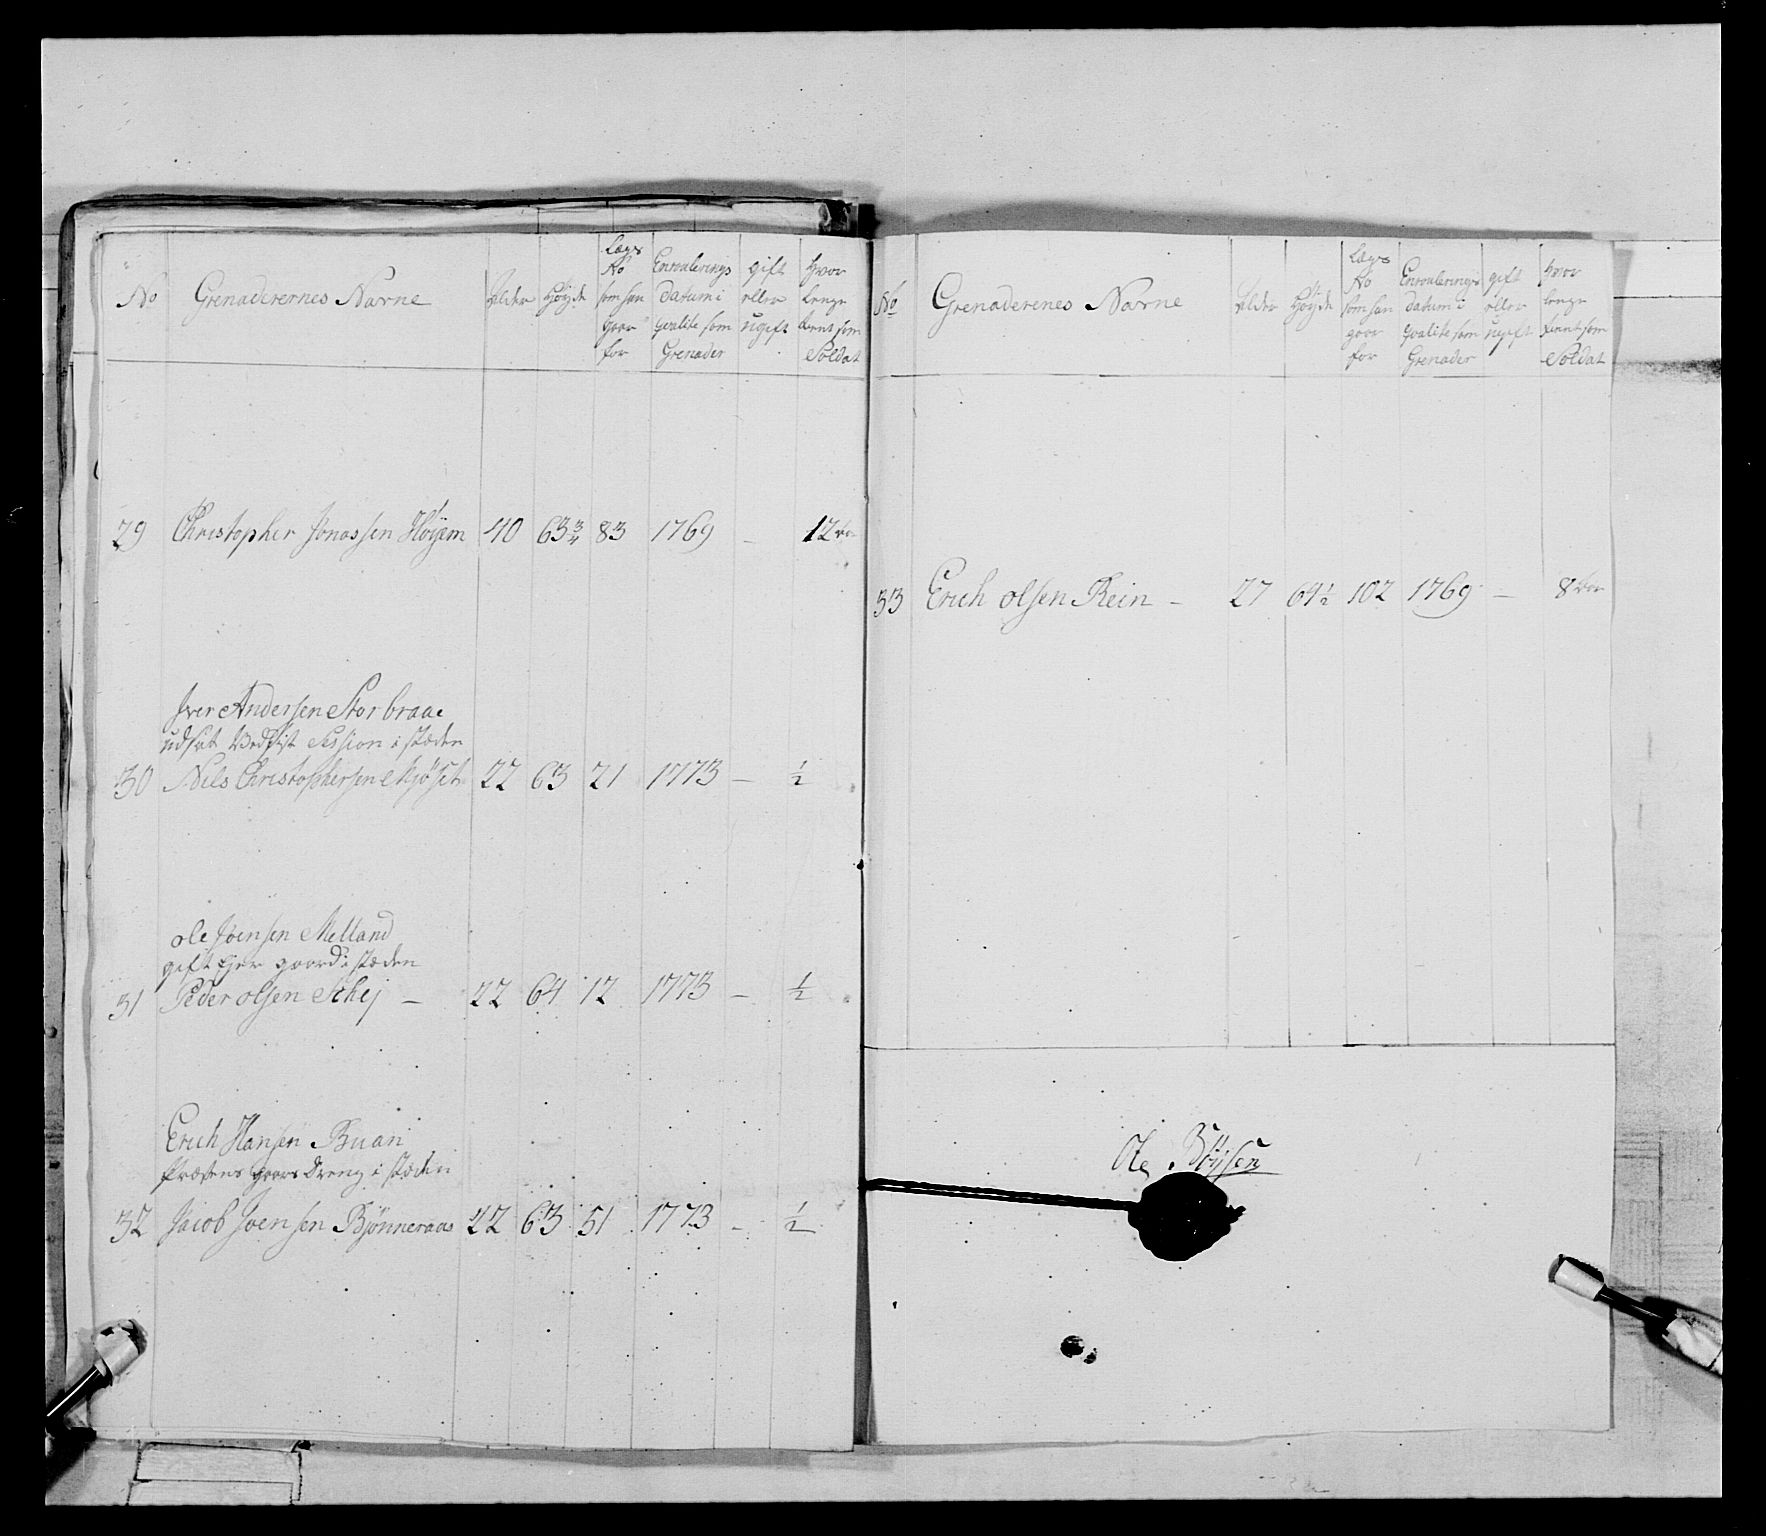 No Grenaderernes Navne Alder Høyde Lægs No som han gaar for Enroulerings datum i qvalite som Grenader gift eller ugift hvor lenge tient som Soldat
29 Christopher Jonassen Høÿem 40 63 3/4 83 1769 – 12
Iver Andersen Storbraae
udsat Ved sist Session i stæden
30 Nils Christophersen Mjøset 22 63 21 1773 – 1/2
ole Joensen Melland
gift Ejer gaard i stæden
31 Peder olsen Schej – 22 64 12 1773 – 1/2
Erich Hansen Buan
Præstens gaars Dreng i stæden
32 Jacob Joensen Bjönneraas 22 63 51 1773 – 1/2
No Grenaderenes Navne Alder Høyde Lægs No som han gaar for Enroulerings datum i qvalite som Grenader gift eller ugift hvor lenge tient som Soldat
33 Erich olsen Rein – 27 64 1/2 102 1769 – 8
Ole